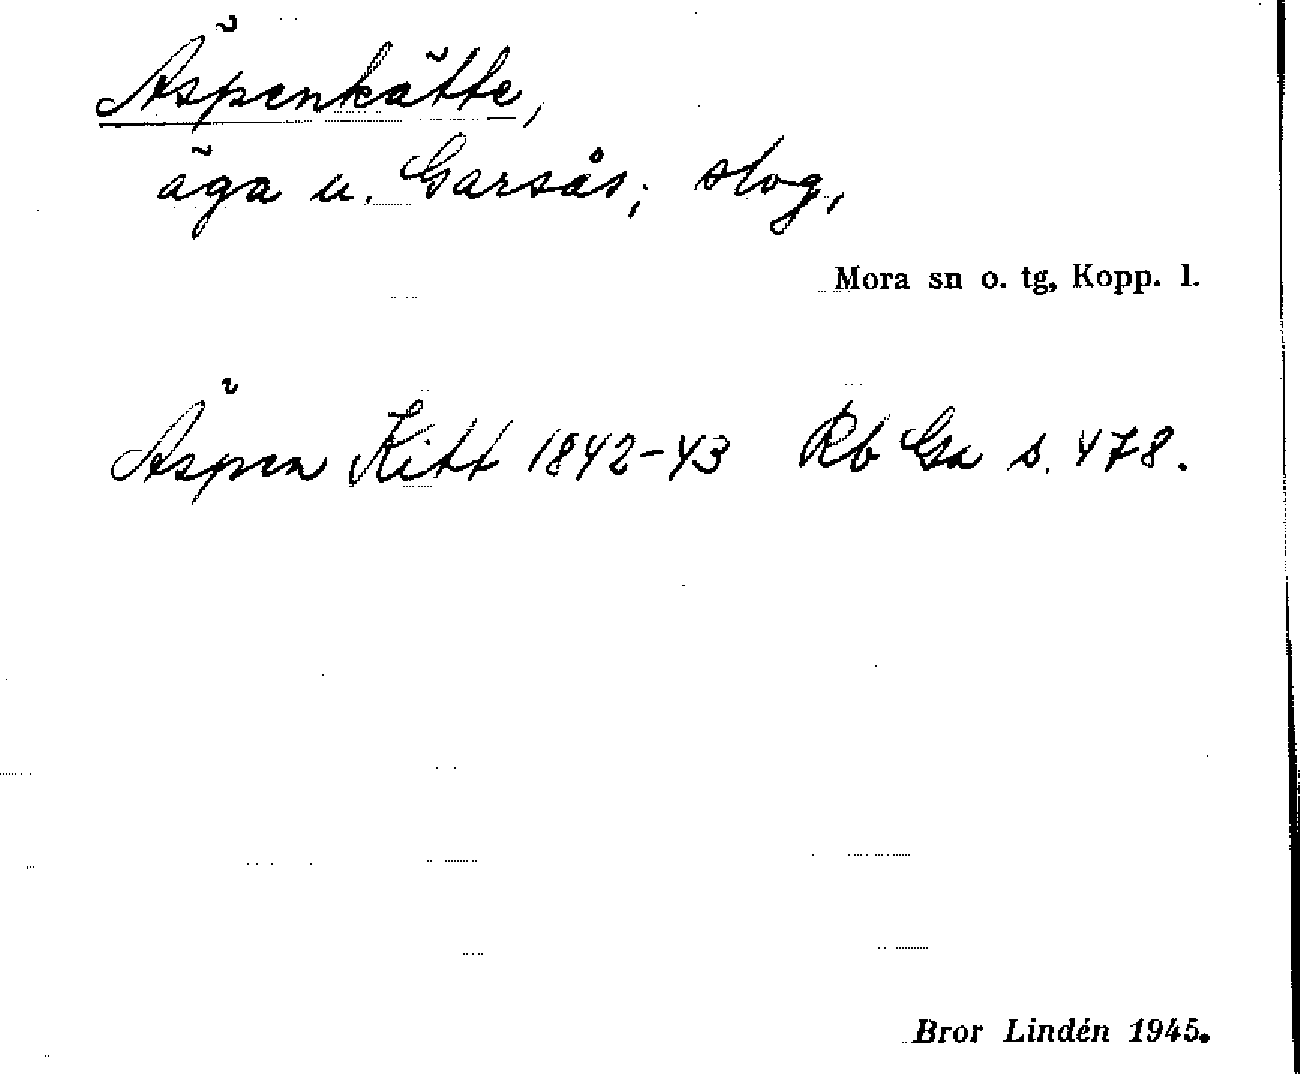 Äspenkätte,
äga u. Garsås; slog,
Mora sn o. tg, Kopp. l.
Äspen Kitt 1842-43 Rb Ga s. 478.
Bror Lindén 1945.